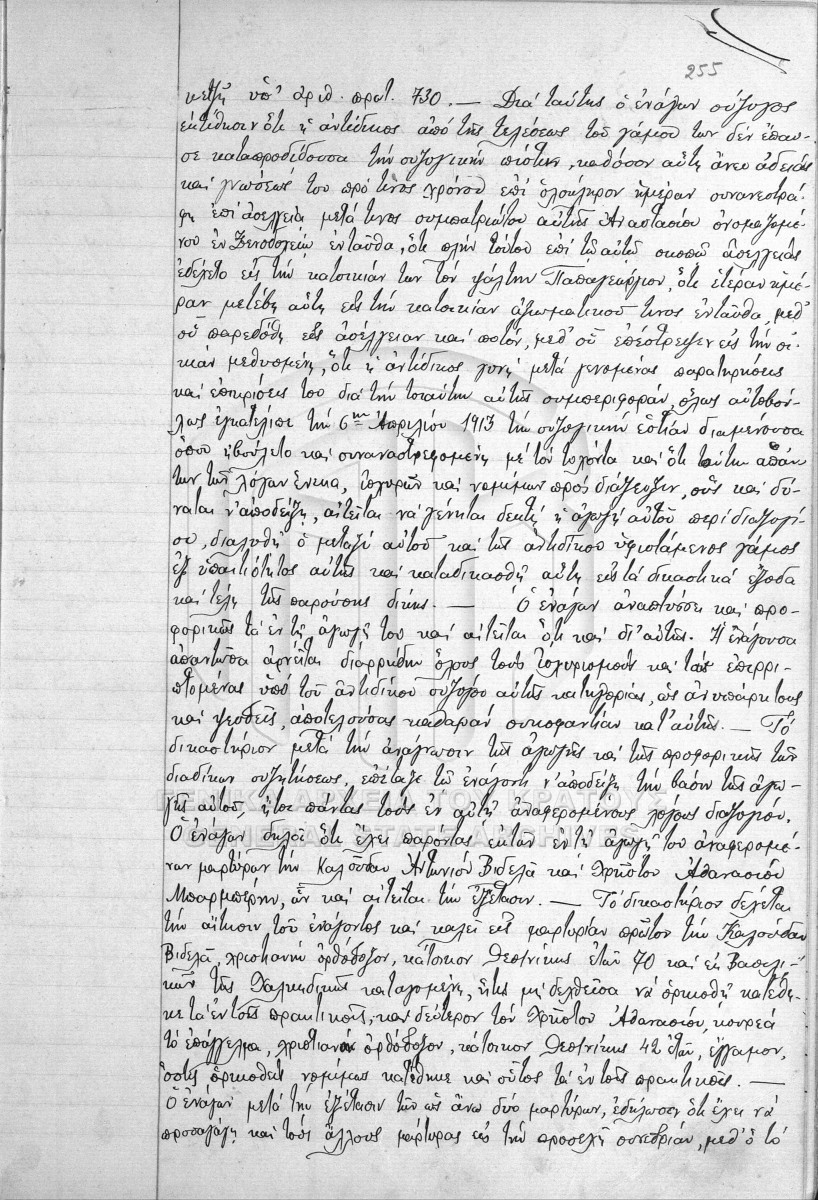 255
κετζῆ ὑπ' ἀριθ. πρωτ. 730. — Διὰ ταύτης ὁ ἐνάγων σύζυγος
ἐκτίθησιν ὅτι ἡ ἀντίδικος ἀπὸ τῆς τελέσεως τοῦ γάμου των δὲν ἔπαυ-
σε καταπροδίδουσα τὴν συζυγικὴν πίστιν, καθόσον αὕτη ἄνευ ἀδείας
καὶ γνώσεώς του πρό τινος χρόνου ἐπὶ ὁλόκληρον ἡμέραν συνανεστρά-
φη ἐπὶ ἀσελγείᾳ μετά τινος συμπατριώτου αὐτῆς Ἀναστασίου ὀνομαζομέ-
νου ἐν Ξενοδοχείῳ ἐνταῦθα, ὅτι πλὴν τούτου ἐπὶ τῷ αὐτῷ σκοπῷ ἀσελγείας
ἐδέχετο εἰς τὴν κατοικίαν των τὸν ψάλτην Παπαγεώργιον, ὅτι ἑτέραν ἡμέ-
ραν μετέβη αὕτη εἰς τὴν κατοικίαν ἀξιωματικοῦ τινος ἐνταῦθα, μεθ'
οὗ παρεδόθη εἰς ἀσέλγειαν καὶ πότον, μεθ' οὗ ἐπέστρεψεν εἰς τὴν οἰ-
κίαν μεθυσμένη, ὅτι ἡ ἀντίδικος γυνὴ μετὰ γενομένας παρατηρήσεις
καὶ ἐπικρίσεις του διὰ τὴν τοιαύτην αὐτῆς συμπεριφοράν, ὅλως αὐτοβού-
λως ἐγκατέλιπε τὴν 6ην Ἀπριλίου 1913 τὴν συζυγικὴν ἑστίαν διαμένουσα
ὅπου ἠβούλετο καὶ συναναστρεφομένη μὲ τὸν τυχόντα καὶ ὅτι τούτων ἁπάν-
των τῶν λόγων ἕνεκα, ἰσχυρῶν καὶ νομίμων πρὸς διάζευξιν, οὓς καὶ δύ-
ναται ν' ἀποδείξῃ, αἰτεῖται νὰ γένηται δεκτὴ ἡ ἀγωγὴ αὐτοῦ περὶ διαζυγί-
ου, διαλυθῇ ὁ μεταξὺ αὐτοῦ καὶ τῆς ἀντιδίκου ὑφιστάμενος γάμος
ἐξ ὑπαιτιότητος αὐτῆς καὶ καταδικασθῇ αὕτη εἰς τὰ δικαστικὰ ἔξοδα
καὶ τέλη τῆς παρούσης δίκης. — Ὁ ἐνάγων ἀναπτύσσει καὶ προ-
φορικῶς τὰ ἐν τῇ ἀγωγῇ του καὶ αἰτεῖται ὅ,τι καὶ δι' αὐτῆς. Ἡ ἐνάγουσα
ἀπαντῶσα ἀρνεῖται διαρρήδην ὅλους τοὺς ἰσχυρισμοὺς καὶ τὰς ἐπιρρι-
πτομένας ὑπὸ τοῦ ἀντιδίκου συζύγου αὐτῆς κατηγορίας, ὡς ἀνυπάρκτους
καὶ ψευδεῖς, ἀποτελούσας καθαρὰν συκοφαντίαν κατ' αὐτῆς. — Τὸ
δικαστήριον μετὰ τὴν ἀνάγνωσιν τῆς ἀγωγῆς καὶ τῆς προφορικῆς τῶν
διαδίκων συζητήσεως, ἐπέταξε τῷ ἐνάγοντι ν' ἀποδείξῃ τὴν βάσιν τῆς ἀγω-
γῆς αὐτοῦ, ἤτοι πάντας τοὺς ἐν αὐτῇ ἀναφερομένους λόγους διαζυγίου.
Ὁ ἐνάγων δηλοῖ ὅτι ἔχει παρόντας ἐκ τῶν ἐν τῇ ἀγωγῇ του ἀναφερομέ-
νων μαρτύρων τὴν Καλούδαν Ἀντωνίου Βιδελᾶ καὶ Χρῆστον Ἀθανασίου
Μπαρμπέρην, ὧν καὶ αἰτεῖται τὴν ἐξέτασιν. — Τὸ δικαστήριον δέχεται
τὴν αἴτησιν τοῦ ἐνάγοντος καὶ καλεῖ εἰς μαρτυρίαν πρῶτον τὴν Καλούδαν
Βιδελᾶ, χριστιανὴν ὀρθόδοξον, κάτοικον Θεσ/νίκης ἐτῶν 70 καὶ ἐκ Βασιλι-
κῶν τῆς Χαλκιδικῆς καταγομένη, ἥτις μὴ δεχθεῖσα νὰ ὁρκισθῇ κατέθη-
κε τὰ ἐν τοῖς πρακτικοῖς, καὶ δεύτερον τὸν Χρῆστον Ἀθανασίου, κουρέα
τὸ ἐπάγγελμα, χριστιανὸν ὀρθόδοξον, κάτοικον Θεσ/νίκης 42 ἐτῶν, ἔγγαμον,
ὅστις ὁρκισθεὶς νομίμως κατέθηκε καὶ οὗτος τὰ ἐν τοῖς πρακτικοῖς. —
Ὁ ἐνάγων μετὰ τὴν ἐξέτασιν τῶν ὡς ἄνω δύο μαρτύρων, ἐδήλωσεν ὅτι ἔχει νὰ
προσαγάγῃ καὶ τοὺς ἄλλους μάρτυρας εἰς τὴν προσεχῆ συνεδρίαν, μεθ' ὃ τὸ
ΓΕΝΙΚΑ ΑΡΧΕΙΑ ΤΟΥ ΚΡΑΤΟΥΣ
GENERAL STATE ARCHIVES